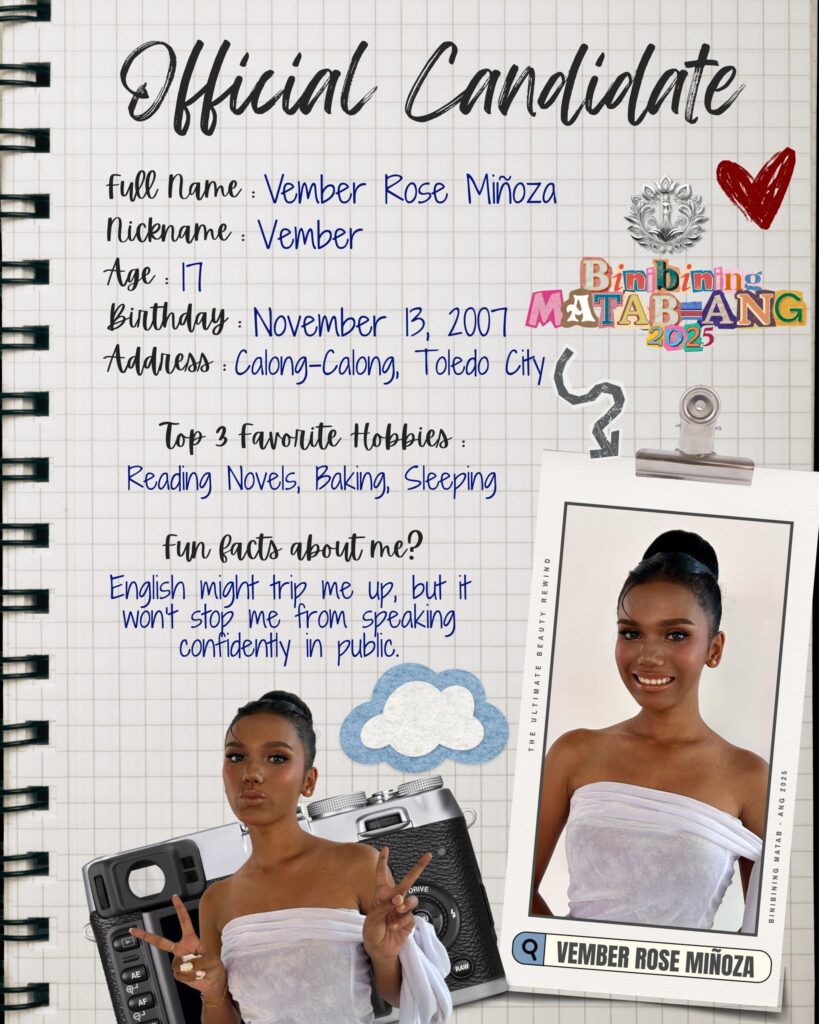 Official Candidate
Full Name : Vember Rose Miñoza
Nickname : Vember
Age : 17
Birthday : November 13, 2007
Address : Calong-Calong, Toledo City
Binibining
MATAB-ANG
2025
Top 3 Favorite Hobbies :
Reading Novels, Baking, Sleeping
Fun facts about me?
English might trip me up, but it
won't stop me from speaking
confidently in public.
THE ULTIMATE BEAUTY REWIND
BINIBINING MATAB - ANG 2025
VEMBER ROSE MIÑOZA
DRIVE
AE
AF
RAW